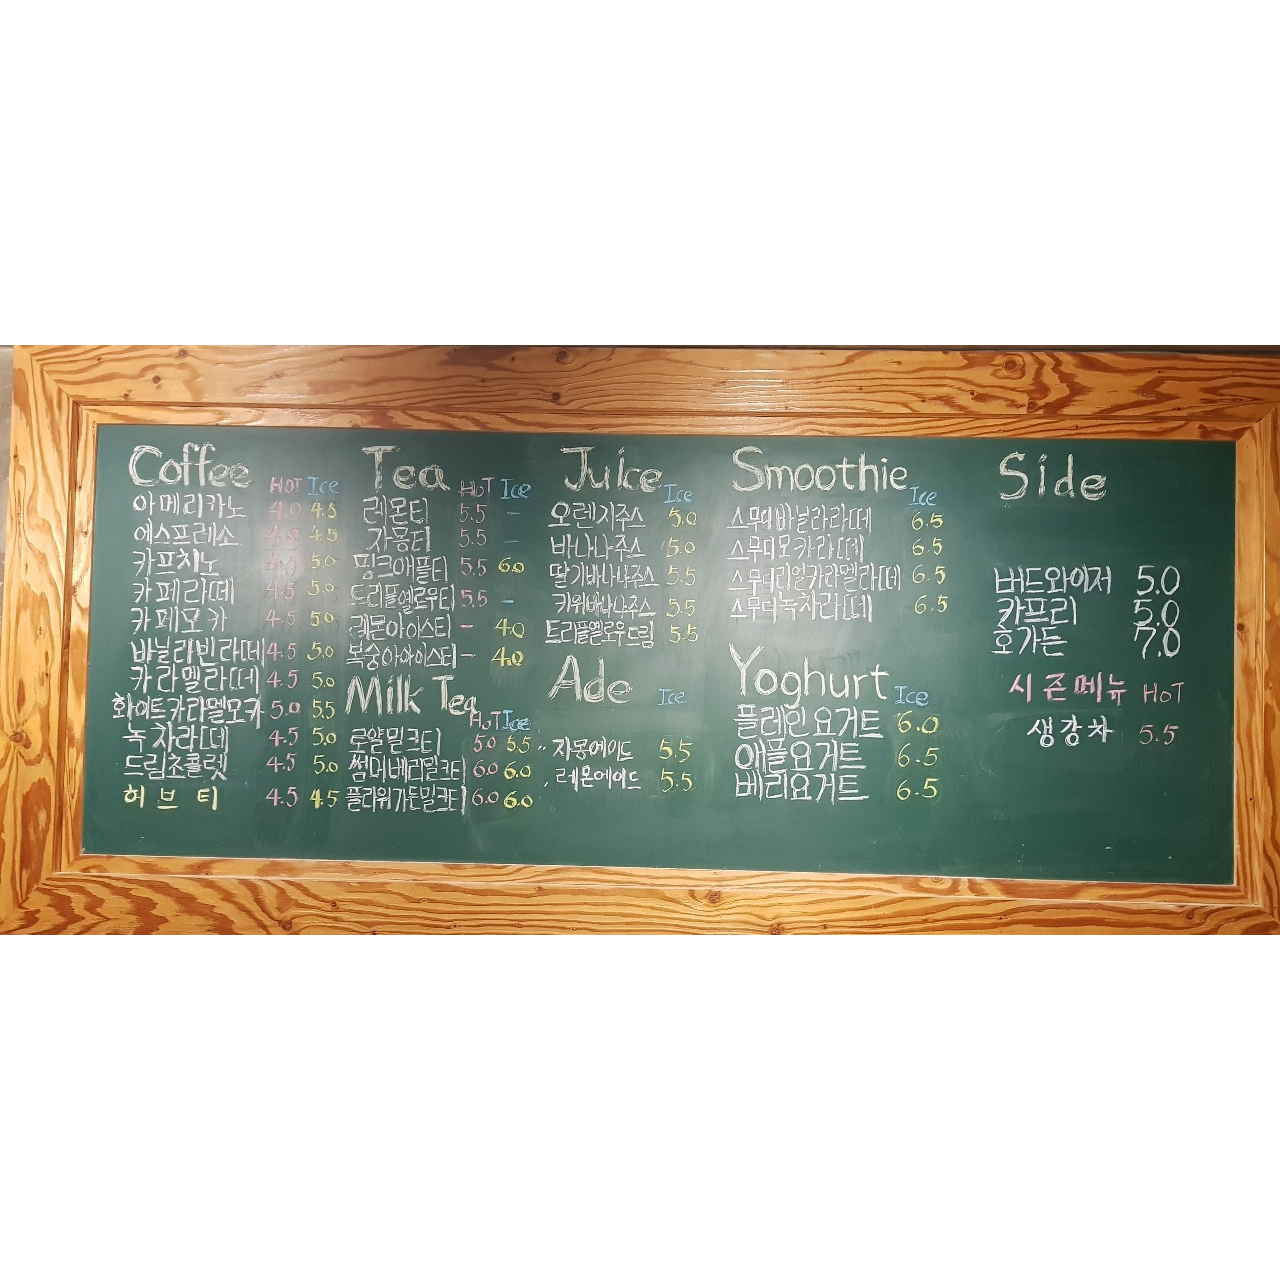 Coffee HOT Ice
아메리카노 4.0 4.5
에스프레소 4.5
카프치노 5.0
카페라떼 4.5 5.0
카페모카 4.5 5.0
바닐라빈라떼 4.5 5.0
카라멜라떼 4.5 5.0
화이트카라멜모카 5.0 5.5
녹차라떼 4.5 5.0
드림초콜렛 4.5 5.0
허브티 4.5 4.5
Tea HOT Ice
레몬티 5.5 -
자몽티 5.5 -
핑크애플티 5.5 6.0
트리플옐로우티 5.5 -
레몬아이스티 - 4.0
복숭아아이스티 - 4.0
Milk Tea HOT Ice
로얄밀크티 5.0 5.5
썸머베리밀크티 6.0 6.0
플라워가든밀크티 6.0 6.0
Juice Ice
오렌지주스 5.0
바나나주스 5.0
딸기바나나주스 5.5
키위바나나주스 5.5
트리플옐로우드림 5.5
Ade Ice
자몽에이드 5.5
레몬에이드 5.5
Smoothie Ice
스무디바닐라라떼 6.5
스무디모카라떼 6.5
스무디리얼카라멜라떼 6.5
스무디녹차라떼 6.5
Yoghurt Ice
플레인요거트 6.0
애플요거트 6.5
베리요거트 6.5
Side
버드와이저 5.0
카프리 5.0
호가든 7.0
시즌메뉴 HOT
생강차 5.5